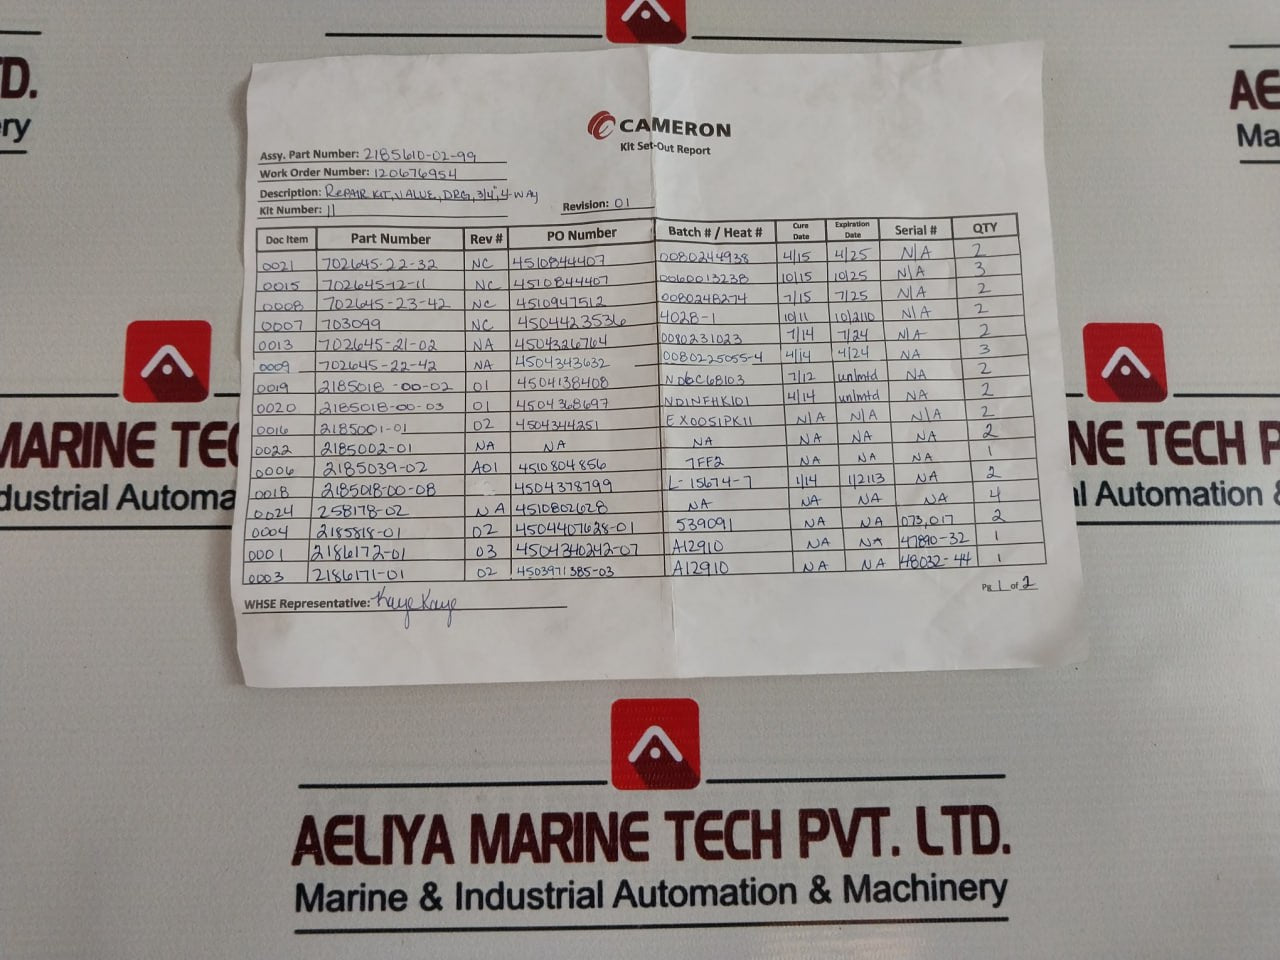 D.
ry
AE
Ma
CAMERON
Kit Set-Out Report
Assy. Part Number: 2185610-02-99
Work Order Number: 120676954
Description: REPAIR KIT, VALUE, DRG, 3/4", 4-WAY
Kit Number: 11
Revision: 01
Doc Item Part Number Rev # PO Number Batch # / Heat # Cure Date Expiration Date Serial # QTY
0021 702645-22-32 NC 4510844407 0080244938 4/15 4/25 N/A 2
0015 702645-12-11 NC 4510844407 0060013238 10/15 10/25 N/A 3
0008 702645-23-42 NC 4510947512 0080248274 7/15 7/25 N/A 2
0007 703099 NC 4504423536 4028-1 10/11 10/2110 N/A 2
0013 702645-21-02 NA 4504326764 0080231023 7/14 7/24 N/A 2
0009 702645-22-42 NA 4504343632 0080225055-4 4/14 4/24 NA 3
0019 2185018-00-02 01 4504138408 7/12 unlmtd NA 2
0020 2185018-00-03 01 4504368697 NDINFHK101 4/14 unlmtd NA 2
0016 2185001-01 02 4504344251 EX0051PK11 N/A N/A N/A 2
0022 2185002-01 NA NA NA NA NA NA 2
0006 2185039-02 A01 4510804856 7FF2 NA NA NA 1
0018 2185018-00-08 4504378799 L-15674-7 1/14 1/2113 NA 2
0024 258178-02 NA 4510802628 NA NA NA NA 4
0004 2185818-01 02 4504407628-01 539091 NA NA 073,017 2
0001 2186172-01 03 4504340242-07 A12910 NA NA 47890-32 1
0003 2186171-01 02 4503971385-03 A12910 NA NA 48032-44 1
WHSE Representative: Kaye Kaye
Pg 1 of 2
MARINE TEC
dustrial Automa
NE TECH P
l Automation &
AELIYA MARINE TECH PVT. LTD.
Marine & Industrial Automation & Machinery